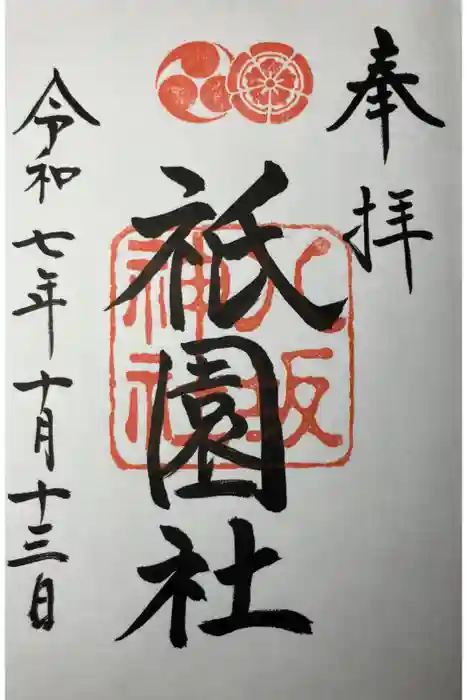 奉拝
祇園社
八坂神社
令和七年十月十三日